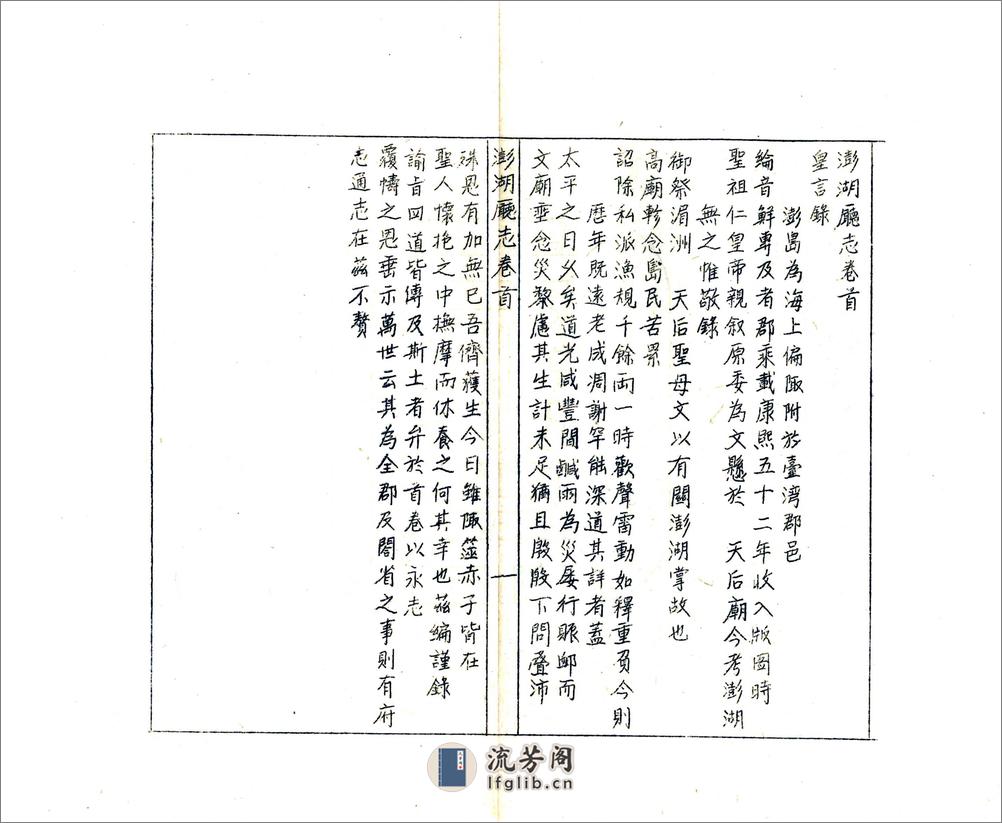 澎湖廳志卷首
皇言錄
澎島為海上偏陬附於臺灣郡邑
綸音鮮專及者郡乘載康熙五十二年收入版圖時
聖祖仁皇帝親叙原委為文懸於 天后廟今考澎湖
無之惟敬錄
御祭湄洲 天后聖母文以有關澎湖掌故也
高廟軫念島民苦累
詔除私派漁規千餘両一時歡聲雷動如釋重負今則
歷年既遠老成凋謝罕能深道其詳者蓋
太平之日久矣道光咸豐間鹹雨為災屢行賑卹而
文廟垂念災黎慮其生計未足猶且殷殷下問疊沛
澎湖廳志卷首
一
殊恩有加無已吾儕獲生今日雖陬澨赤子皆在
聖人懷抱之中撫摩而休養之何其幸也茲編謹錄
諭旨四道皆傳及斯土者弁於首卷以永志
覆幬之恩垂示萬世云其為全郡及閤省之事則有府
志通志在茲不贅
流芳阁
lfglib.cn